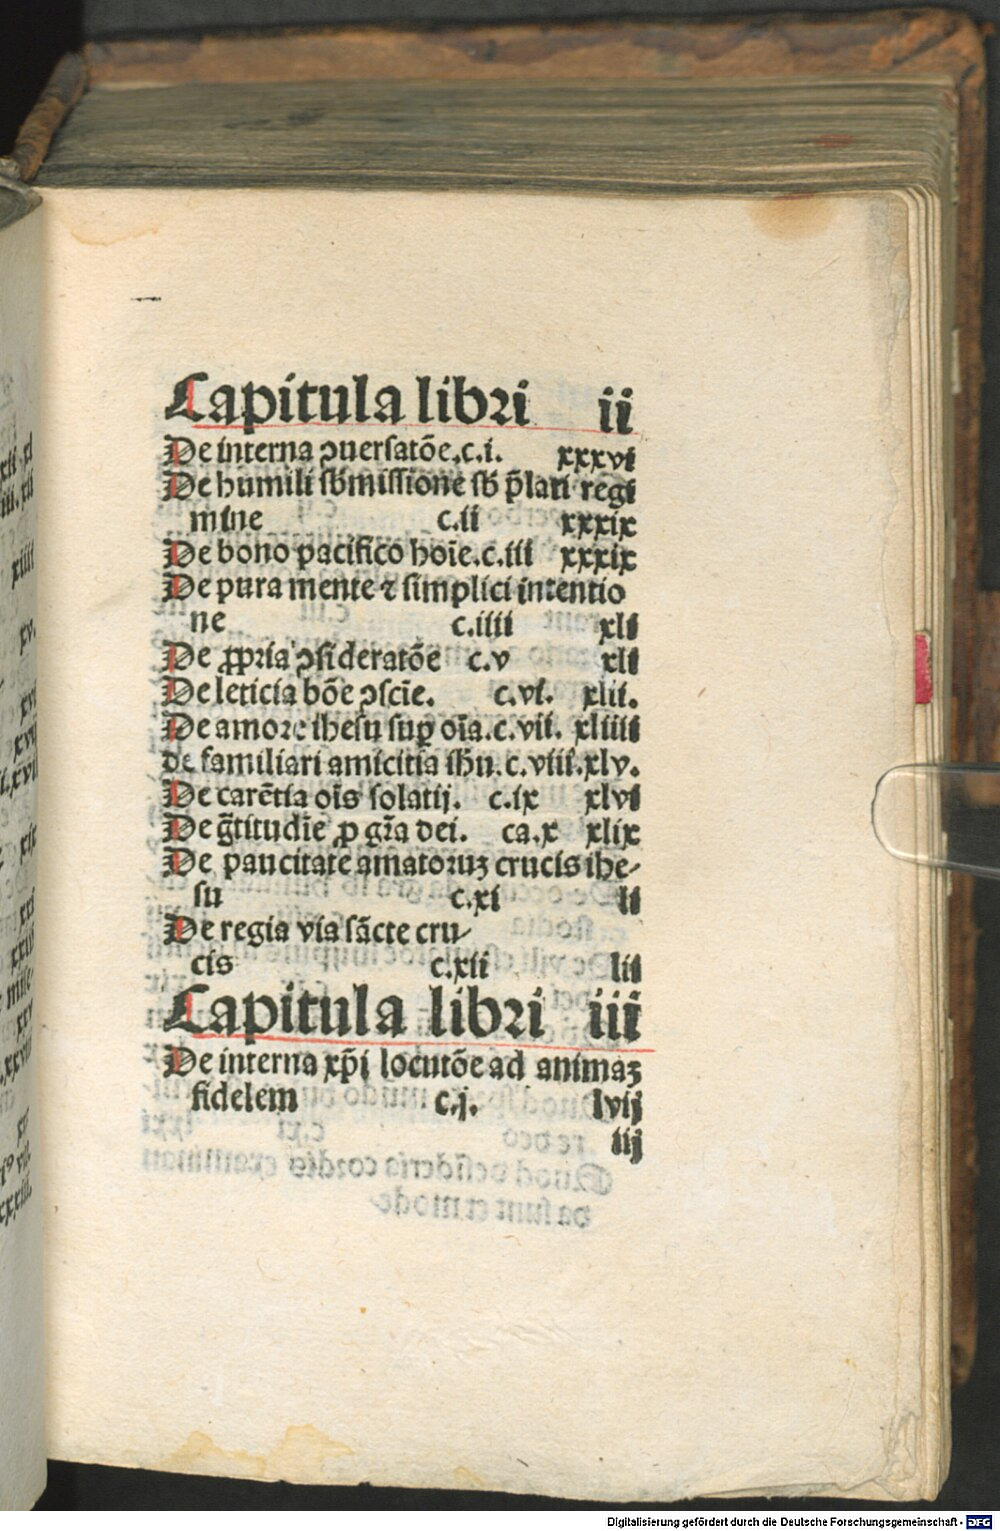 Capitula libri ii
De interna ↄuersatōe.c.i. xxxvi
De humili sb̄missione sb̄ p̄lati regi
mine c.ii xxxix
De bono pacifico hoīe.c.iii xxxix
De pura mente ⁊ simplici intentio
ne c.iiii xli
De ꝓpria ↄsideratōe c.v xli
De leticia bōe ↄscīe. c.vi. xlii.
De amore ihesu suꝑ oīa.c.vii. xliiii
de familiari amicitia ihū.c.viii.xlv.
De carētia oīs solatij. c.ix xlvi
De g̃titudīe ꝓ gr̄a dei. ca.x xlix
De paucitate amatoruꝫ crucis ihe-
su c.xi li
De regia via sācte cru-
cis c.xii lii
Capitula libri iii
De interna xp̄i locutōe ad animaꝫ
fidelem c.j. lvij
iij
Digitalisierung gefördert durch die Deutsche Forschungsgemeinschaft - DFG